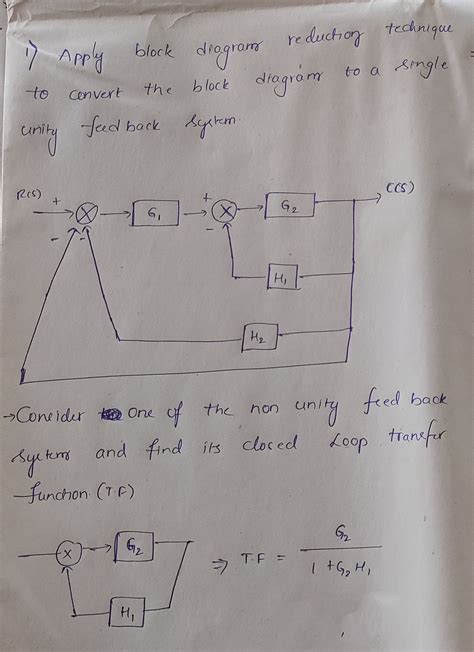 1) Apply block diagram reduction technique
to convert the block diagram to a single
unity feedback system.
R(S) + G1 + G2 C(S)
- - -
H1
H2
→Consider one of the non unity feed back
system and find its closed Loop transfer
function. (T.F)
G2
H1
⇒ T.F = G2
1 + G2 H1